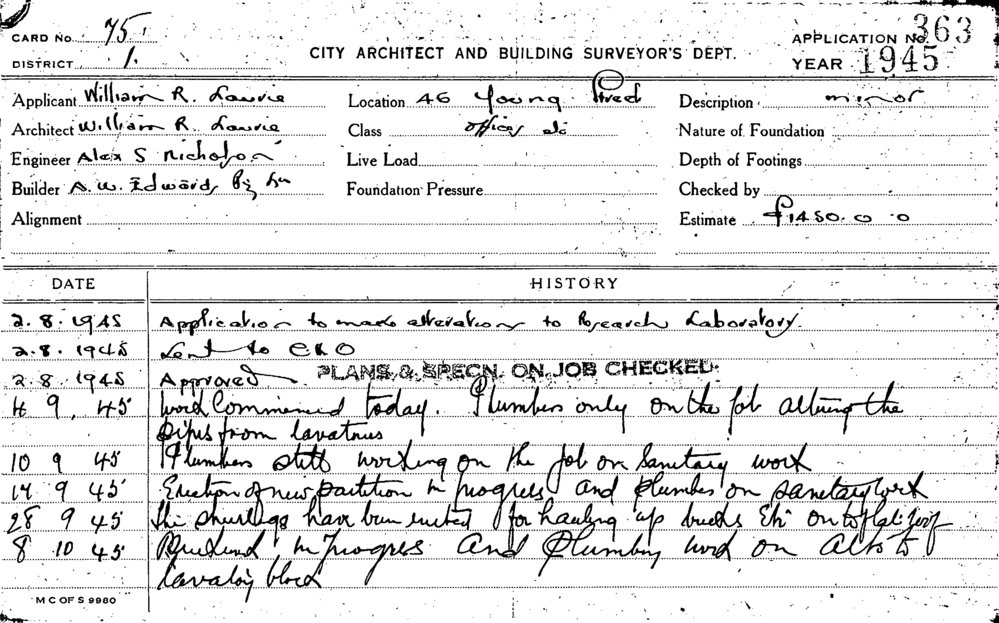 CARD No. 75.
APPLICATION No. 363
CITY ARCHITECT AND BUILDING SURVEYOR'S DEPT.
DISTRICT 1.
YEAR 1945
Applicant William R. Lawrie Location 46 Young Street Description minor
Architect William R. Lawrie Class offices etc Nature of Foundation
Engineer Alex S Nicholson Live Load Depth of Footings
Builder A. W. Edwards Foundation Pressure Checked by
Alignment Estimate £1450. 0. 0
DATE HISTORY
2. 8. 1945 Application to make alterations to Research Laboratory.
2. 8. 1945 Sent to
2. 8. 1945 Approved PLANS & SPECN. ON JOB CHECKED.
4 9. 45 Work Commenced today. Plumbers only on the job altering the
pipes from lavatries
10 9 45 Plumbers still working on the job on Sanitary work
17 9 45 Erection of new partition in progress and plumbers on sanitary work
28 9 45 The have been erected for hauling up bricks Etc on to flat roof
8 10 45 Brickwork in progress and Plumbing work on alts to
lavatory block
M C OF S 9980